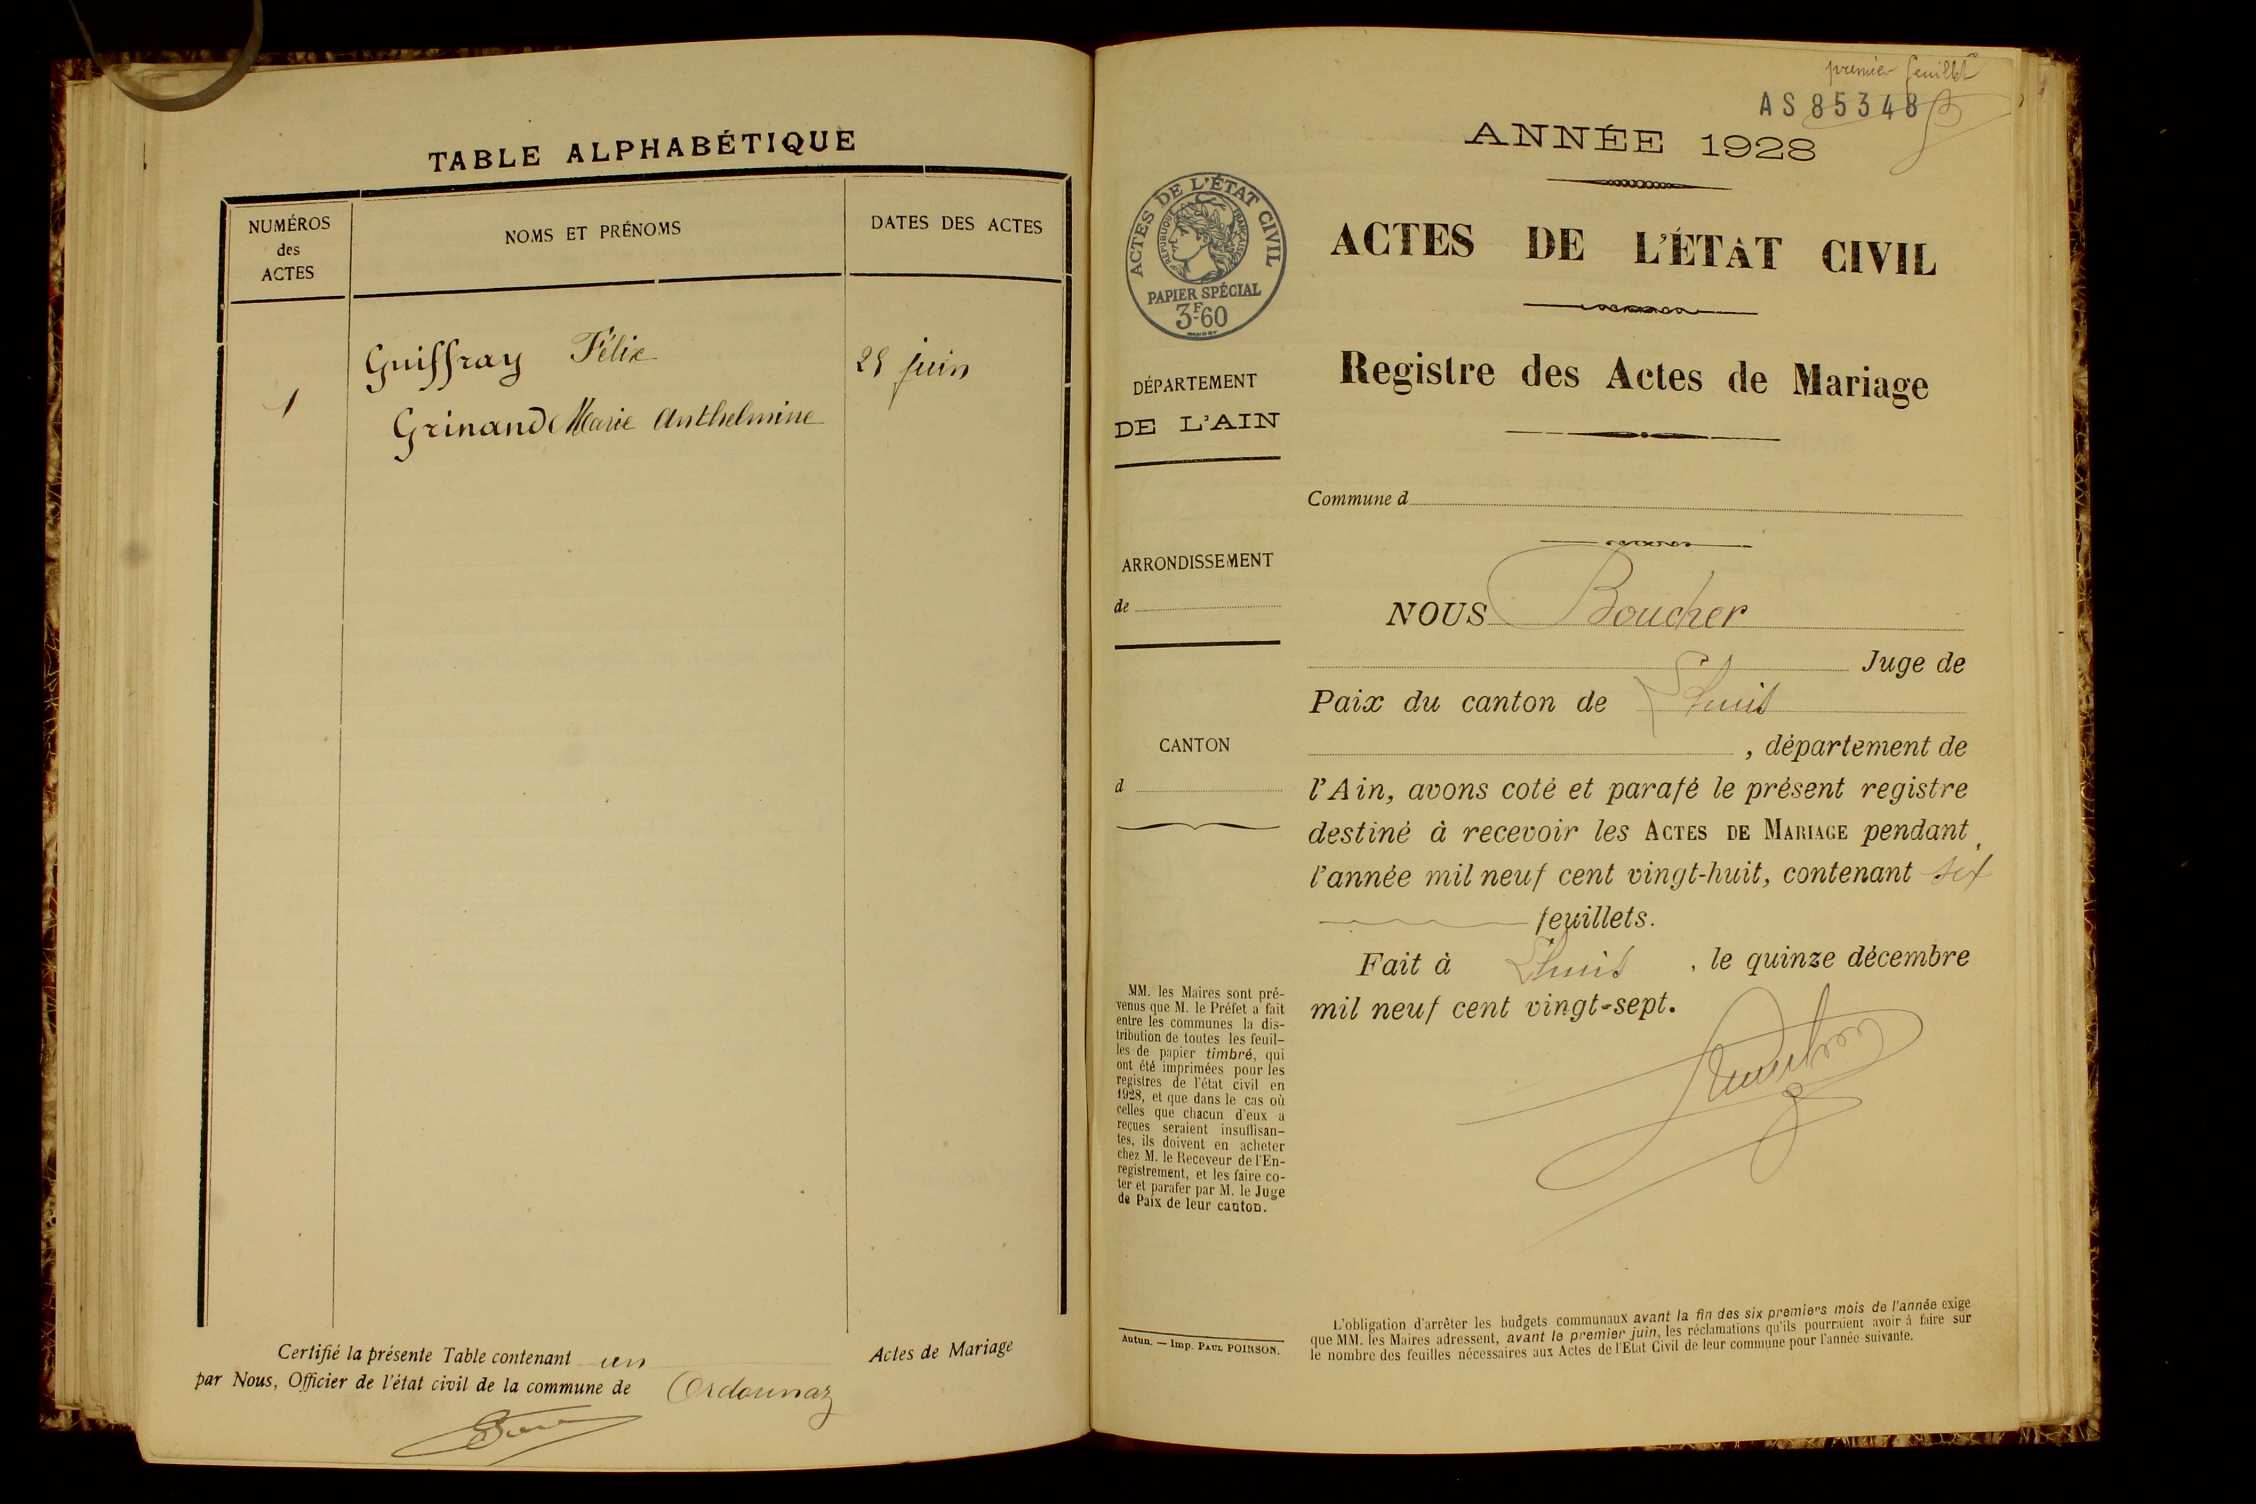 TABLE ALPHABÉTIQUE
NUMÉROS
des
ACTES
NOMS ET PRÉNOMS
DATES DES ACTES
Guiffray Félix
juin
1
Grinand Marie Anthelmine
Certifié la présente Table contenant un
Actes de Mariage
par Nous, Officier de l'état civil de la commune de Ordonnaz
premier feuillet
AS 85348
ANNÉE 1928
ACTES DE L'ÉTAT CIVIL
RÉPUBLIQUE FRANÇAISE
PAPIER SPÉCIAL
3F60
ACTES DE L'ÉTAT CIVIL
Registre des Actes de Mariage
DÉPARTEMENT
DE L'AIN
Commune d
ARRONDISSEMENT
de
NOUS Boucher
Juge de
Paix du canton de Lhuis
CANTON
, département de
d
l'Ain, avons coté et parafé le présent registre
destiné à recevoir les ACTES DE MARIAGE pendant
l'année mil neuf cent vingt-huit, contenant six
feuillets.
Fait à Lhuis, le quinze décembre
mil neuf cent vingt-sept.
MM. les Maires sont pré-
venus que M. le Préfet a fait
entre les communes la dis-
tribution de toutes les feuil-
les de papier timbré, qui
ont été imprimées pour les
registres de l'état civil en
1928, et que dans le cas où
celles que chacun d'eux a
reçues seraient insuffisan-
tes, ils doivent en acheter
chez M. le Receveur de l'En-
registrement, et les faire co-
ter et parafer par M. le Juge
de Paix de leur canton.
Autun. — Imp. PAUL POIRSON.
L'obligation d'arrêter les budgets communaux avant la fin des six premiers mois de l'année exige
que MM. les Maires adressent, avant le premier juin, les réclamations qu'ils pourraient avoir à faire sur
le nombre des feuilles nécessaires aux Actes de l'Etat Civil de leur commune pour l'année suivante.